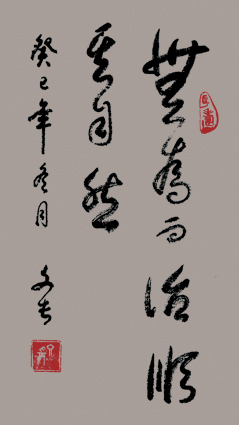 無為而治順
其自然
癸巳年冬月 文武